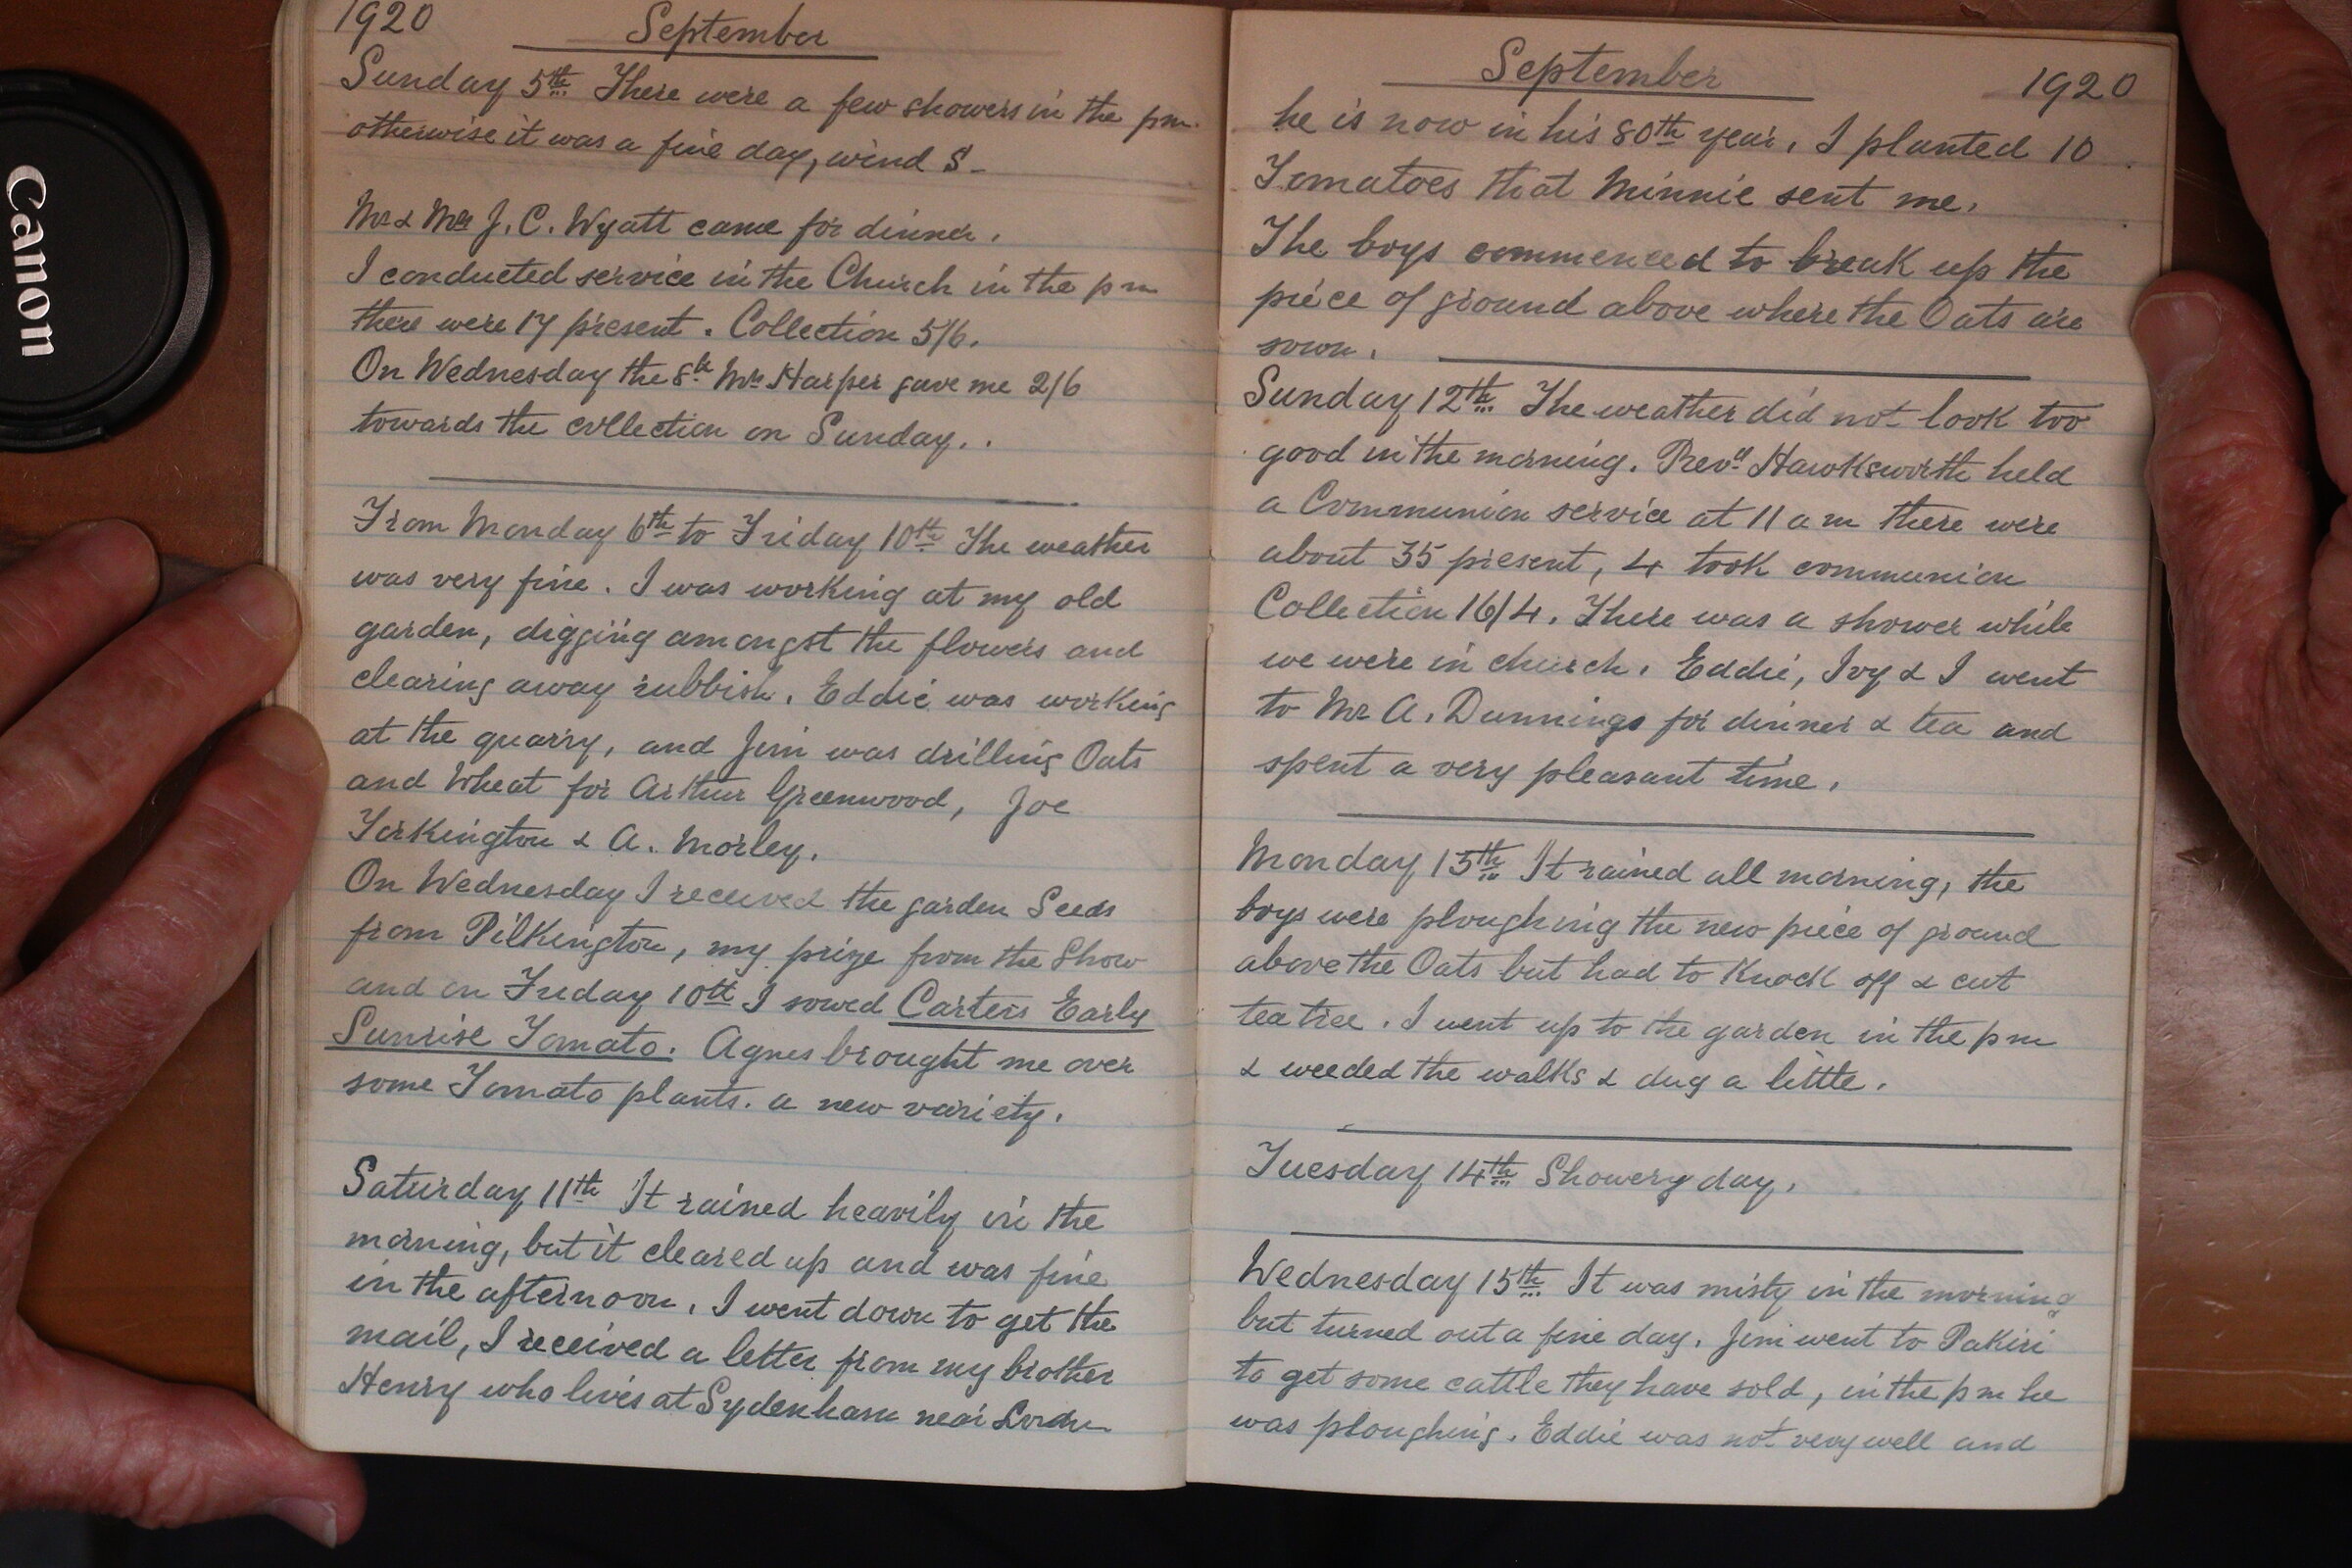 Canon
1920
September
Sunday 5th There were a few showers in the pm.
otherwise it was a fine day, wind S-
Mr & Mrs J. C. Wyatt came for dinner.
I conducted service in the Church in the pm
there were 17 present. Collection 5/6.
On Wednesday the 8th Mrs Harper gave me 2/6
towards the collection on Sunday..
From Monday 6th to Friday 10th The weather
was very fine. I was working at my old
garden, digging amongst the flowers and
clearing away rubbish. Eddie was working
at the quarry, and Jim was drilling Oats
and Wheat for Arthur Greenwood, Joe
Torkington & A. Morley.
On Wednesday I received the garden Seeds
from Pilkington, my prize from the Show
and on Friday 10th I sowed Carters Early
Sunrise Tomato. Agnes brought me over
some Tomato plants. a new variety.
Saturday 11th It rained heavily in the
morning, but it cleared up and was fine
in the afternoon. I went down to get the
mail, I received a letter from my brother
Henry who lives at Sydenham near London
September
1920
he is now in his 80th year. I planted 10
Tomatoes that Minnie sent me.
The boys commenced to break up the
piece of ground above where the Oats are
sown.
Sunday 12th The weather did not look too
good in the morning. Revd Hawksworth held
a Communion service at 11 am there were
about 35 present, 4 took communion
Collection 16/4. There was a shower while
we were in church. Eddie, Ivy & I went
to Mr A. Dunnings for dinner & tea and
spent a very pleasant time.
Monday 13th It rained all morning, the
boys were ploughing the new piece of ground
above the Oats but had to knock off & cut
tea tree. I went up to the garden in the pm
& weeded the walks & dug a little.
Tuesday 14th Showery day.
Wednesday 15th It was misty in the morning
but turned out a fine day. Jim went to Pakiri
to get some cattle they have sold, in the pm he
was ploughing. Eddie was not very well and